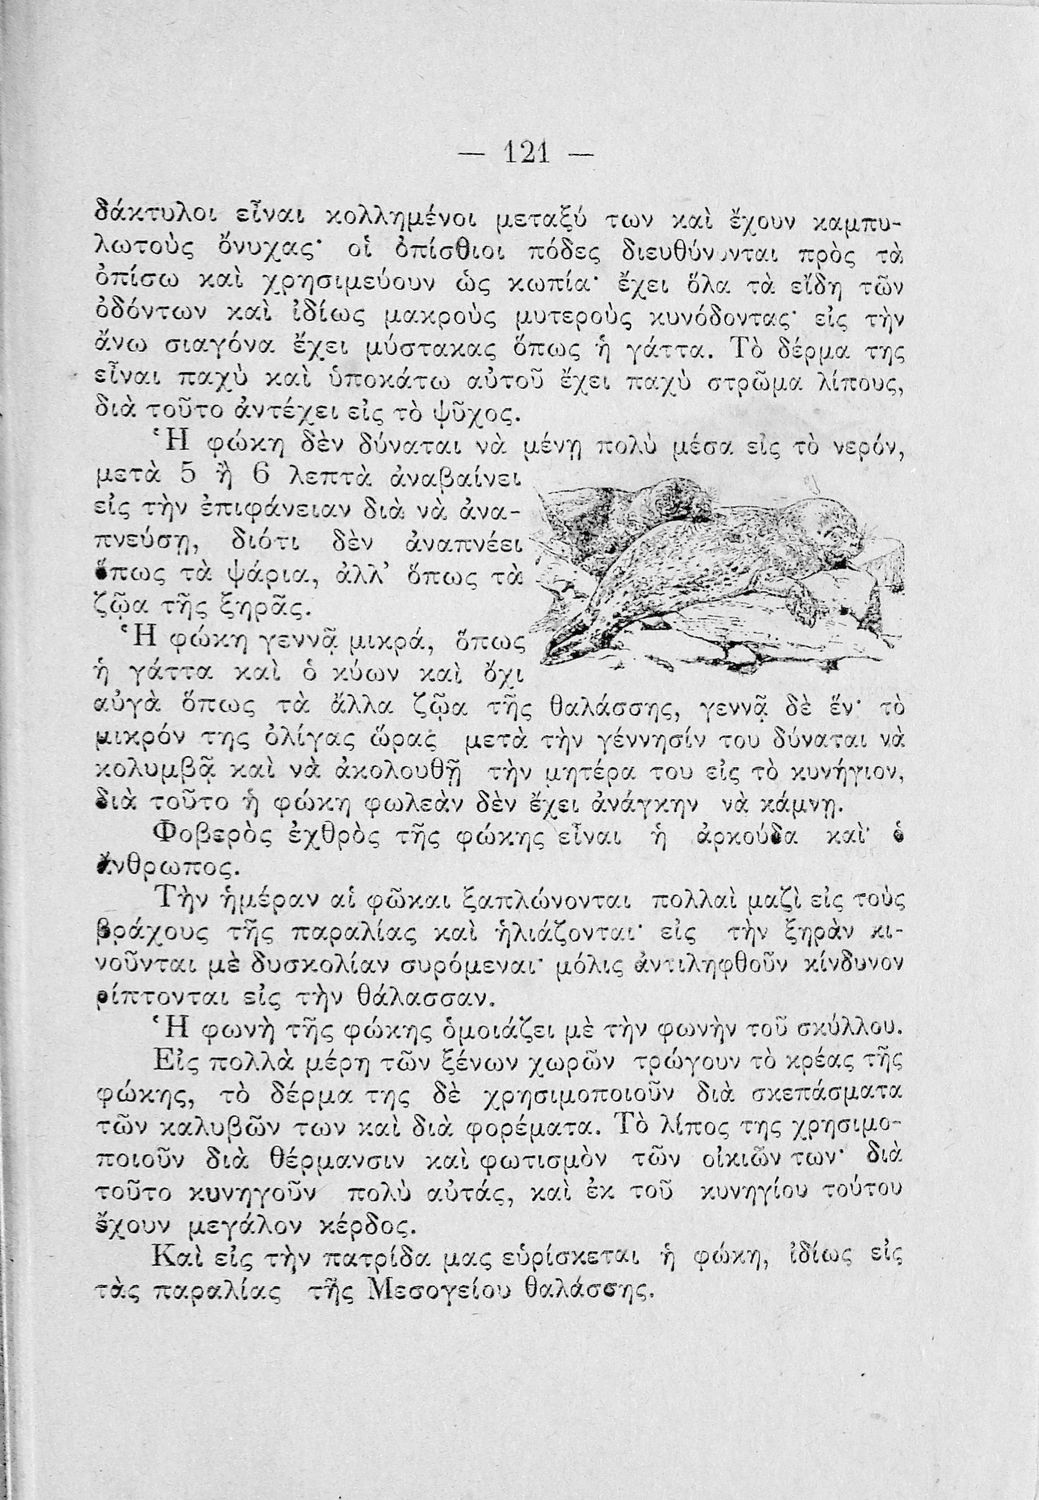 — 121 —
δάκτυλοι εἶναι κολλημένοι μεταξύ των καὶ ἔχουν καμπυ-
λωτοὺς ὄνυχας· οἱ ὀπίσθιοι πόδες διευθύνονται πρὸς τὰ
ὀπίσω καὶ χρησιμεύουν ὡς κωπία· ἔχει ὅλα τὰ εἴδη τῶν
ὀδόντων καὶ ἰδίως μακροὺς μυτεροὺς κυνόδοντας· εἰς τὴν
ἄνω σιαγόνα ἔχει μύστακας ὅπως ἡ γάττα. Τὸ δέρμα της
εἶναι παχὺ καὶ ὑποκάτω αὐτοῦ ἔχει παχὺ στρῶμα λίπους,
διὰ τοῦτο ἀντέχει εἰς τὸ ψῦχος.
Ἡ φώκη δὲν δύναται νὰ μένῃ πολὺ μέσα εἰς τὸ νερόν,
μετὰ 5 ἢ 6 λεπτὰ ἀναβαίνει
εἰς τὴν ἐπιφάνειαν διὰ νὰ ἀνα-
πνεύσῃ, διότι δὲν ἀναπνέει
ὅπως τὰ ψάρια, ἀλλ’ ὅπως τὰ
ζῷα τῆς ξηρᾶς.
Ἡ φώκη γεννᾷ μικρά, ὅπως
ἡ γάττα καὶ ὁ κύων καὶ ὄχι
αὐγὰ ὅπως τὰ ἄλλα ζῷα τῆς θαλάσσης, γεννᾷ δὲ ἕν· τὸ
μικρόν της ὀλίγας ὥρας μετὰ τὴν γέννησίν του δύναται νὰ
κολυμβᾷ καὶ νὰ ἀκολουθῇ τὴν μητέρα του εἰς τὸ κυνήγιον,
διὰ τοῦτο ἡ φώκη φωλεὰν δὲν ἔχει ἀνάγκην νὰ κάμνῃ.
Φοβερὸς ἐχθρὸς τῆς φώκης εἶναι ἡ ἀρκούδα καὶ ὁ
ἄνθρωπος.
Τὴν ἡμέραν αἱ φῶκαι ξαπλώνονται πολλαὶ μαζὶ εἰς τοὺς
βράχους τῆς παραλίας καὶ ἡλιάζονται· εἰς τὴν ξηρὰν κι-
νοῦνται μὲ δυσκολίαν συρόμεναι· μόλις ἀντιληφθοῦν κίνδυνον
ρίπτονται εἰς τὴν θάλασσαν.
Ἡ φωνὴ τῆς φώκης ὁμοιάζει μὲ τὴν φωνὴν τοῦ σκύλλου.
Εἰς πολλὰ μέρη τῶν ξένων χωρῶν τρώγουν τὸ κρέας τῆς
φώκης, τὸ δέρμα της δὲ χρησιμοποιοῦν διὰ σκεπάσματα
τῶν καλυβῶν των καὶ διὰ φορέματα. Τὸ λίπος της χρησιμο-
ποιοῦν διὰ θέρμανσιν καὶ φωτισμὸν τῶν οἰκιῶν των· διὰ
τοῦτο κυνηγοῦν πολὺ αὐτάς, καὶ ἐκ τοῦ κυνηγίου τούτου
ἔχουν μεγάλον κέρδος.
Καὶ εἰς τὴν πατρίδα μας εὑρίσκεται ἡ φώκη, ἰδίως εἰς
τὰς παραλίας τῆς Μεσογείου θαλάσσης.